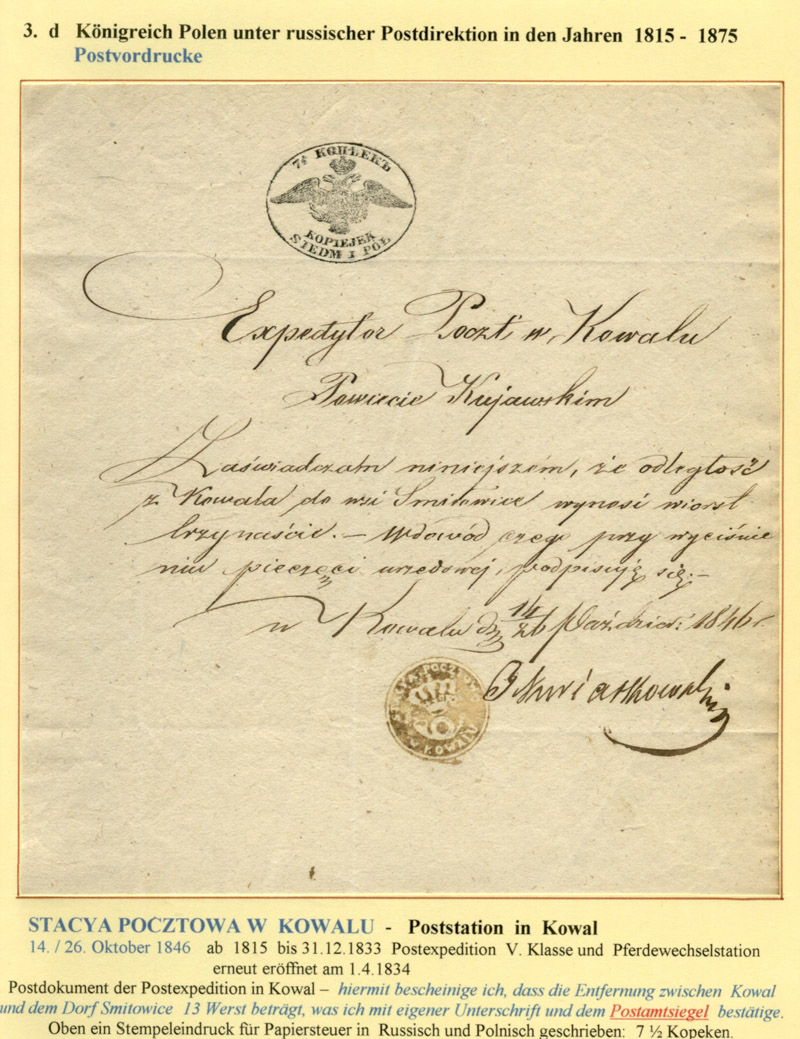 3. d Königreich Polen unter russischer Postdirektion in den Jahren 1815 - 1875
Postvordrucke
7½ КОПѢЕКЪ
KOPIEJEK
SIEDM I PÓŁ
Expedytor Poczt w Kowalu
Powiecie Kujawskim
Zaświadczam niniejszém, że odległość
z Kowala do wsi Smiłowice wynosi wiorst
trzynaście. – W dowód czego przy wyciśnie
niu pieczęci urzędowej, podpisuję się. –
w Kowalu d. 14/26 Paździer: 1846 r.
W KOWALU
STACYA POCZTOWA W KOWALU - Poststation in Kowal
14. / 26. Oktober 1846 ab 1815 bis 31.12.1833 Postexpedition V. Klasse und Pferdewechselstation
erneut eröffnet am 1.4.1834
Postdokument der Postexpedition in Kowal – hiermit bescheinige ich, dass die Entfernung zwischen Kowal
und dem Dorf Smitowice 13 Werst beträgt, was ich mit eigener Unterschrift und dem Postamtsiegel bestätige.
Oben ein Stempeleindruck für Papiersteuer in Russisch und Polnisch geschrieben: 7 ½ Kopeken.